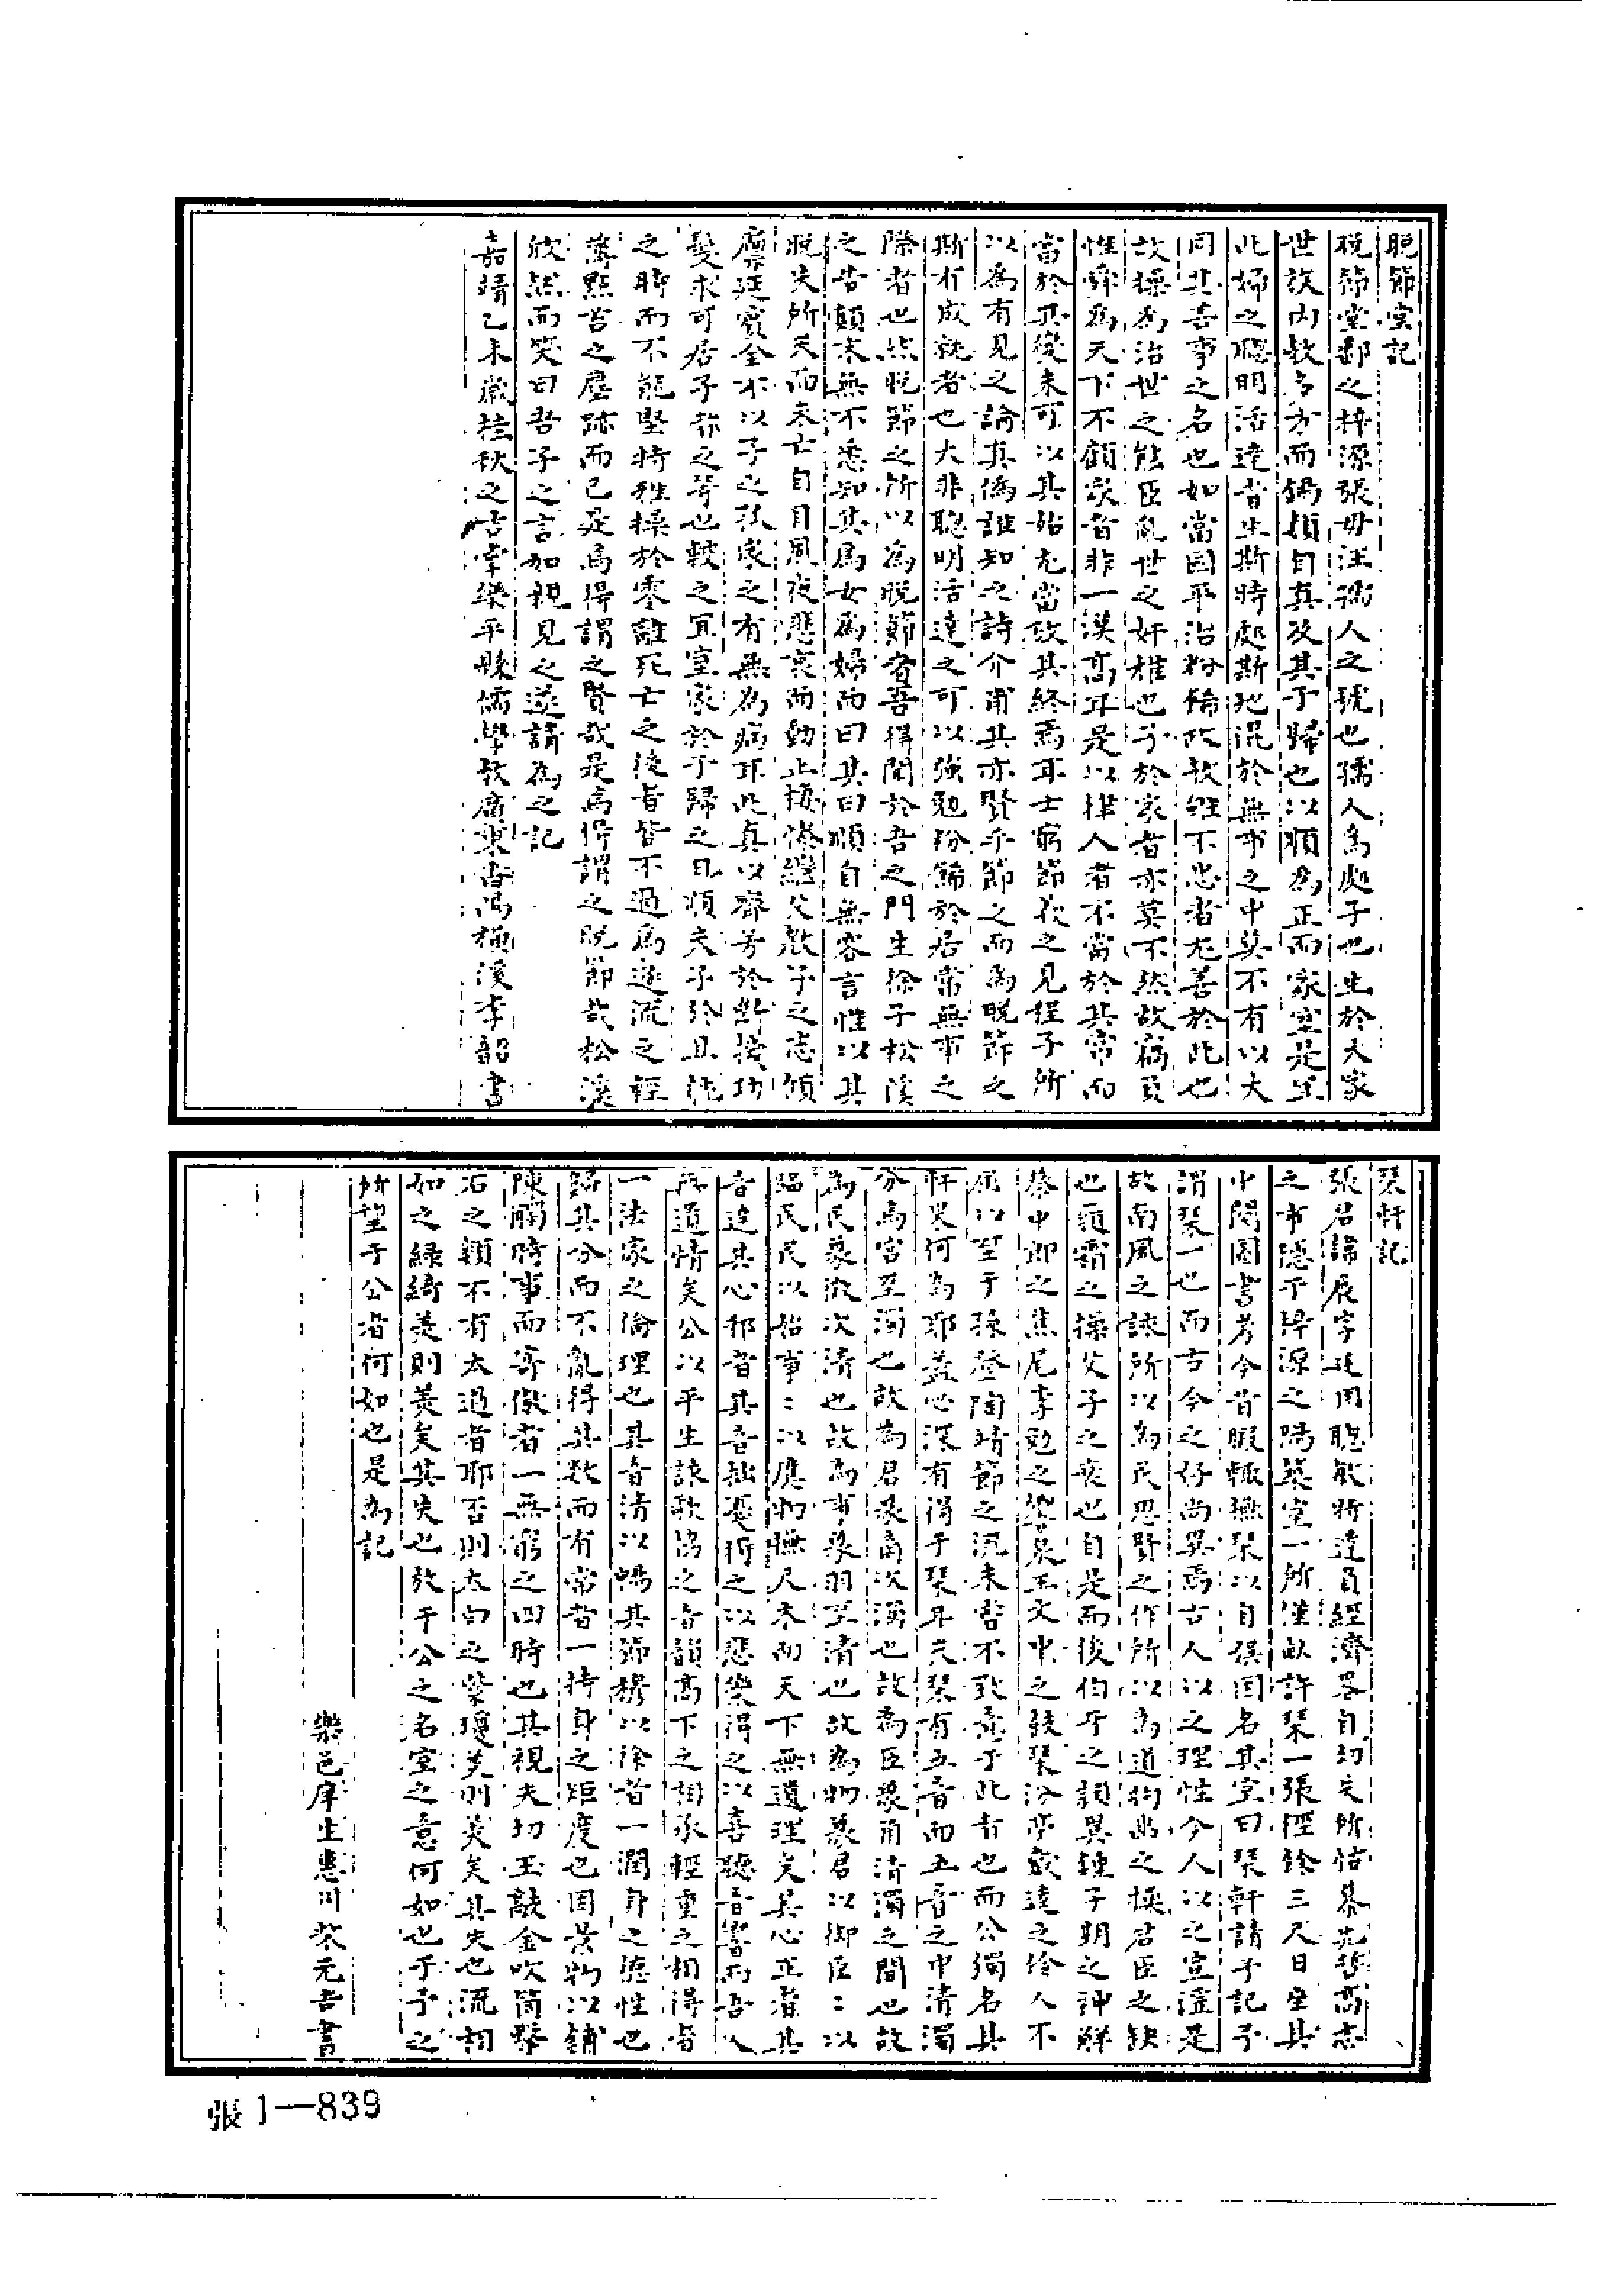 晚節堂記
晚節堂鄱之梓源張毋汪孺人之號也孺人為處子也生於大家
世教內教多方而獨損自真及其于歸也以順為正而家室是宜
此婦之聰明活達者生斯時處斯地混於無事之中莫不有以大
同其善事之名也如當國平治粉飾政教雖不忠者尤善於此也
故操為治世之能臣亂世之奸雄也予於家者亦莫不然故竊負
惟舜為天下不顧家者非一漢高耳是以擇人者不當於其常而
當於其變未可以其始尤當攷其終焉耳士窮節義之見程子所
以為有見之論真偽誰知之詩介甫其亦賢乎節之而為晚節之
斯有成就者也大非聰明活達之可以強勉粉飾於居常無事之
際者也然晚節之所以為晚節者吾得聞於吾之門生徐子松溪
之告顛末無不悉知其為女為婦而曰其曰順自無容言惟以其
晚失所天而未亡自目夙夜悲哀而動止悽慘繼父教子之志傾
廩延賓全不以子之孤家之有無為病耳此真以齊芳於斷機功
髮求可居子弥之等也較之宜室家於于歸之日順夫子於且
之時而不能堅特雅操於寒離死亡之後者皆不過為逆流之輕
萍點苔之塵跡而已是為得謂之賢哉是為得謂之晚節哉松溪
欣然而笑曰吾子之言如親見之遂請為之記
嘉靖乙未歲桂秋之吉掌樂平縣儒學教廣東香馮梅溪李韶書
琴軒記
張君諱展字廷用聰敏特達負經濟畧自幼失所怙慕先德高志
之市隱于梓源之陽築室一所僅畝許琴一張徑餘三尺日坐其
中閱圖書考今昔暇輒撫琴以自娛因名其室曰琴軒請予記予
謂琴一也而古今之好尚異焉古人以之理性今人以之宣滛是
故南風之詠所以為民思賢之作所以為道拘幽之操君臣之缺
也履霜之操父子之喪也自是而後伯牙之調異鍾子期之神解
蔡中郎之焦尾李勉之響泉王文中之鼓琴汾亭戴逵之伶人不
屈以至于孫登陶靖節之流未嘗不致意于此者也而公獨名其
軒果何為耶蓋心深有得于琴耳夫琴有五音而五音之中清濁
分焉宮至濁也故為君象商次濁也故為臣象角清濁之間也故
為民象徵次清也故為事象羽至清也故為物象君以御臣〻以
臨民民以始事〻以應物憮尺木而天下無遺理矣其心正者其
音達其心邪者其音拙憂得之以悲樂得之以喜聽音響而吾人
再道情矣公以平生詠歌協之音韻高下之相承輕重之相得者
一法家之倫理也其音清以暢其節穆以徐者一潤身之德性也
歸其分而不亂得其數而有常者一持身之矩度也因景物以鋪
陳觸時事而寄傲者一無窮之四時也其視夫切玉敲金吹筒擊
石之類不有太過者耶否則太白之紫瓊美則美矣其失也流相
如之緑綺美則美矣其失也放于公之名室之意何如也于予之
所望于公者何如也是為記
樂邑庠生惠川柴元吉書
張1—839